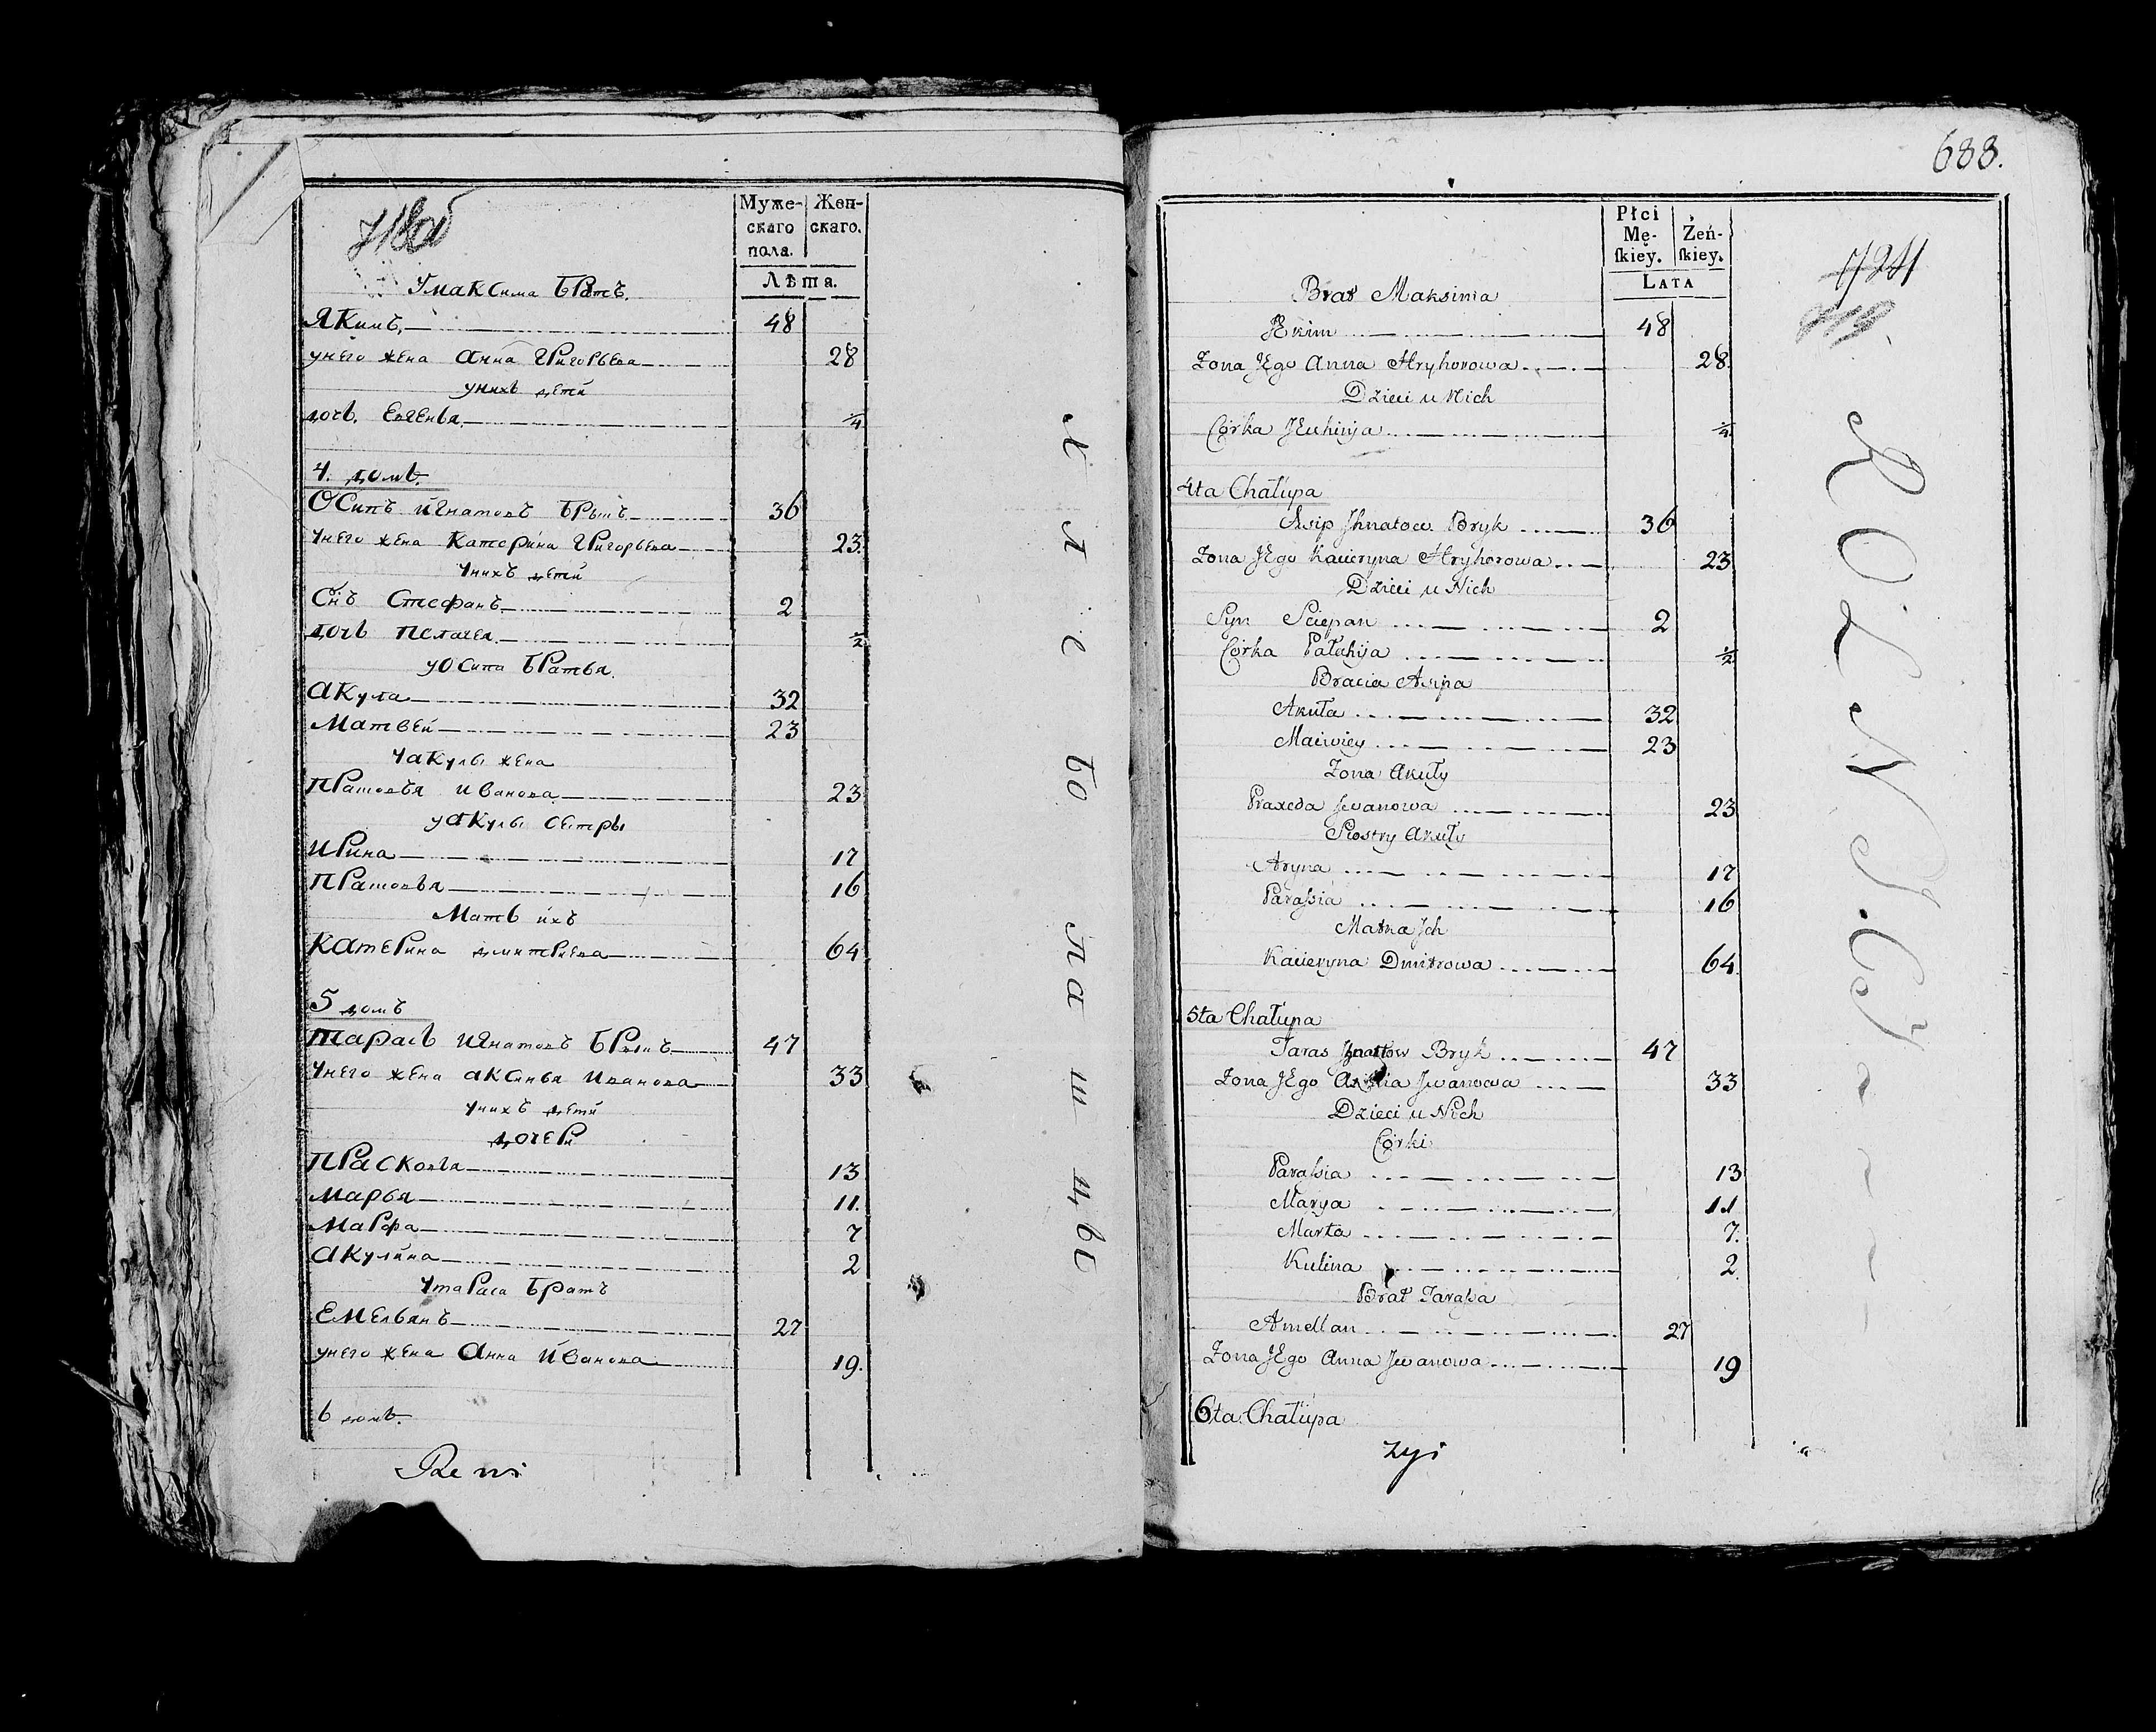 Муже-
скаго
пола.
Жен-
скаго.
Лѣта.
У максима братъ.
Якимъ 48
у него жена анна григорьева 28
у нихъ дети
дочь. Евгенья 1/4
4. домь.
Осипъ игнатовъ брыкъ 36
у него жена катерина григорьева 23.
у нихъ дети
Снъ Стефанъ 2
дочь пелагея 1/2
у осипа братья.
акула 32
матвей 23
у акулы жена
прасковья иванова 23
у акулы сестры
ирина 17
прасковья 16
мать ихъ
катерина дмитриева 64
5 домъ
тарасъ игнатовъ брыкъ 47
у него жена аксинья иванова 33
у нихъ дети
дочери
прасковья 13
марья 11.
марфа 7
акулина 2
у тараса братъ
емельянъ 27
у него жена анна иванова 19.
6 домь.
Rewi
хлебопашцы
688.
Płci
Mę-
ſkiey.
Żeń-
ſkiey.
LATA
1724
Brat Maksima
Akim 48
Zona JEgo Anna Hryhorowa 28.
Dzieci u Nich
Córka JEuhinja 1/4
4ta Chałupa
Asip Jhnatow Bryk 36
Zona JEgo Kacieryna Hryhorowa 23
Dzieci u Nich
Syn Sciepan 2
Córka Pałahija 1/2
Bracia Asipa
Akuła 32
Maciwiey 23
Zona Akuły
Praxeda Jwanowa 23
Siostry Akuły
Aryna 17
Paraſsia 16
Matka Jch
Kacieryna Dmitrowa 64
5ta Chałupa
Taras Jhnatow Bryk 47
Zona JEgo Axinia Jwanowa 33
Dzieci u Nich
Córki
Paraſsia 13
Marya 11
Marta 7.
Kulina 2.
Brat Taraſsa
Amellan 27
Zona JEgo Anna Jwanowa 19
6ta Chałupa
zyi
ROLNJCY